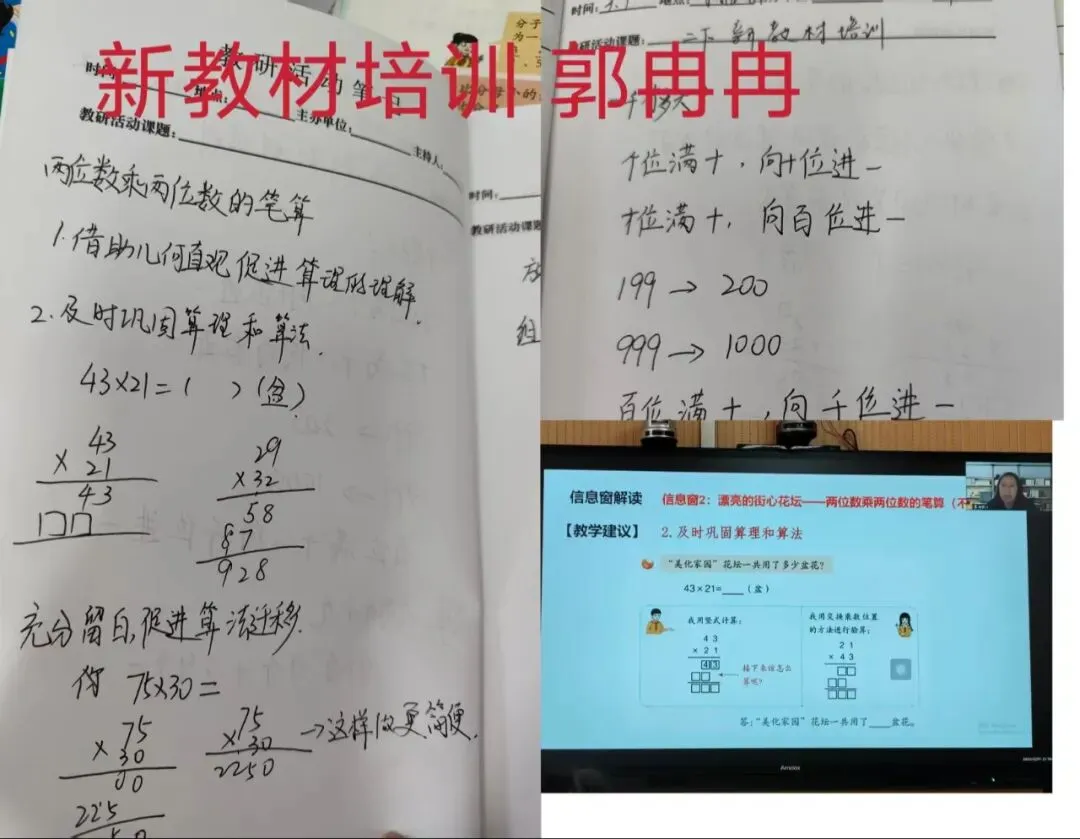 新教材培训 郭冉冉
教研活动笔记
时间: 地点: 主办单位: 主持人:
教研活动课题:
两位数乘两位数的笔算
1.借助几何直观促进算理的理解.
2.及时巩固算理和算法.
43×21=( )(盆)
43
×21
43
□□
29
×32
58
87
928
充分留白,促进算法迁移.
75×30=
75
×30
00
225
75
×30
2250
→这样做更简便.
时间:
教研活动课题
组
分子
为一
时间: 地点:
教研活动课题: 二下新教材培训
个位满十,向十位进一
十位满十,向百位进一
199→200
999→1000
百位满十,向千位进一
信息窗解读 信息窗2:漂亮的街心花坛——两位数乘两位数的笔算(不
【教学建议】 2.及时巩固算理和算法
“美化家园”花坛一共用了多少盆花?
43×21=____(盆)
我用竖式计算:
4 3
× 2 1
4 3
□□
□□□
接下来该怎么
算呢?
我用交换乘数位置
的方法进行验算:
2 1
× 4 3
□□
□□
□□□
答:“美化家园”花坛一共用了____盆花。